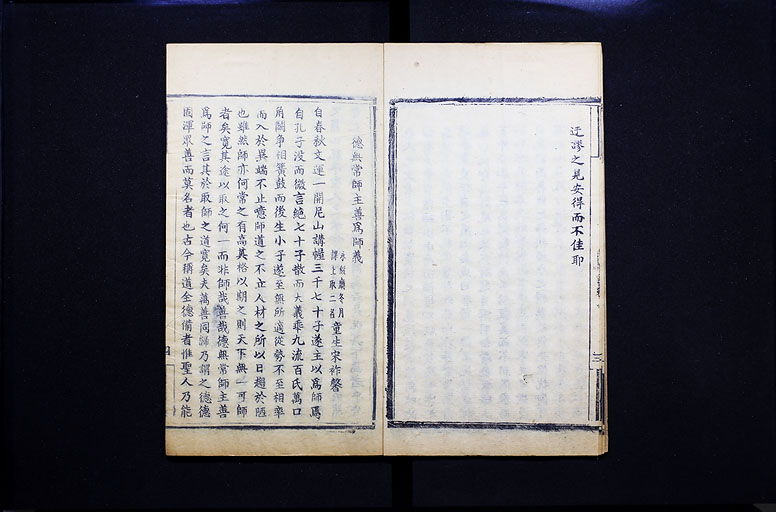 迂謬之見安得而不佳耶
三
德無常師主善爲師義
永綏廳冬月
課上取二名
童生宋祚馨
自春秋文運一開尼山講幄三千七十子遂主以爲師焉
自孔子没而微言絕七十子散而大義乖九流百氏萬口
角鬭爭相簧鼓而後生小子遂至無所適從勢不至相率
而入於異端不止噫師道之不立人材之所以日趨於陋
也雖然師亦何常之有高其格以期之則天下無一可師
者矣寛其途以取之何一而非師哉善哉德無常師主善
爲師之言其於取師之道寛矣夫萬善同歸乃謂之德德
固渾眾善而莫名者也古今稱道全德備者惟聖人乃能
四